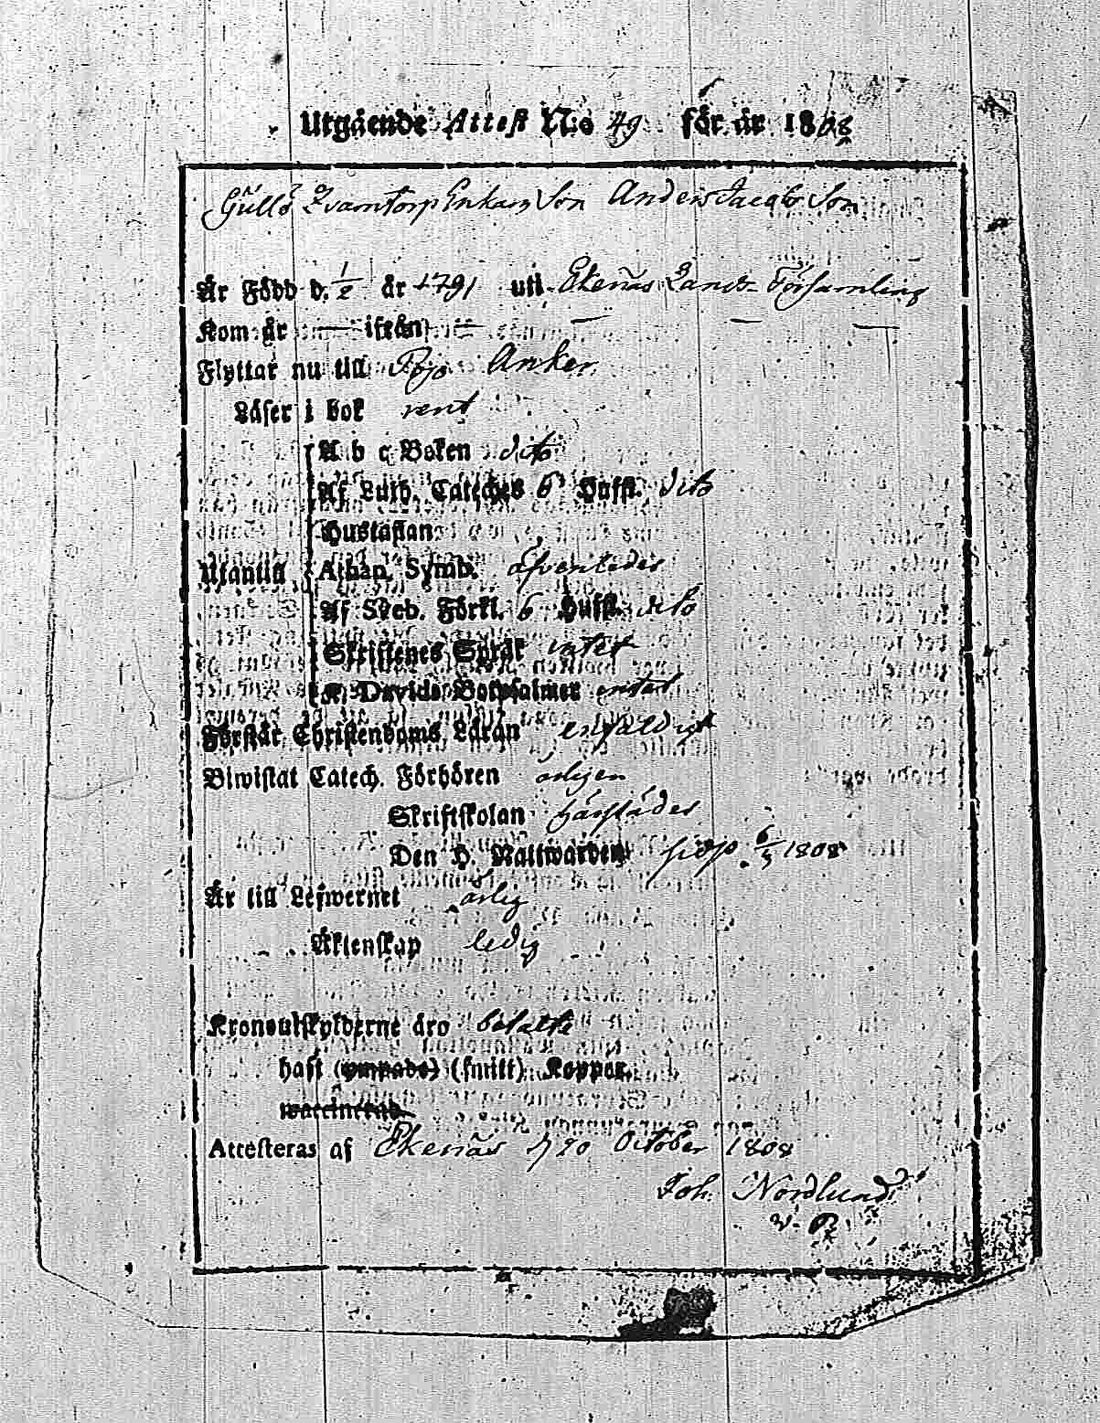 Utgående Attest No 49 för år 1808
Gullö Qvarntorp Enkans Son Anders Jacobs Son
Är Född d. 1/2 år 1791 uti Ekenäs Lands-Församling
Kom år — ifrån —
Flyttar nu till Pojo Anker.
Läser i bok rent
A b c Boken dito
Af Luth. Cateches 6 Huffst. dito
Hustaflan
Utantill Athan. Symb. äfvenledes
Af Sveb. Förkl. 6 Huffst. dito
Skriftenes Språk intet
K. Davids Botpsalmer intet
Förstår Christendoms Läran enfaldigt
Biwistat Catech. Förhören årligen
Skriftskolan härstädes
Den H. Nattwarden sidst 1808
Är till Lefwernet ärlig
Äktenskap ledig
Kronoutskylderne äro betalte
haft (ympade) (smitt) Koppor.
waccinerad.
Attesteras af Ekenäs d 20 October 1808
Joh. Nordlund
v. P.